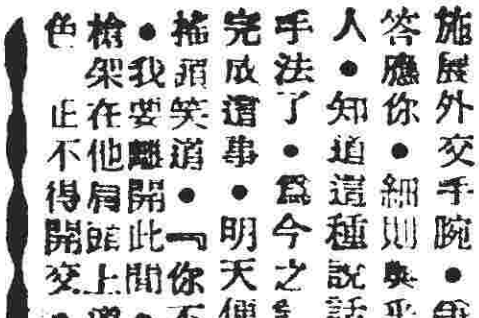 施展外交手腕●
答應你●細則與
人●知道這種說話
手法了●為今之
完成這事●明天便
搖頭笑道●『你不
●我要離開此間
槍架在他肩頭上
色 止不得開交●